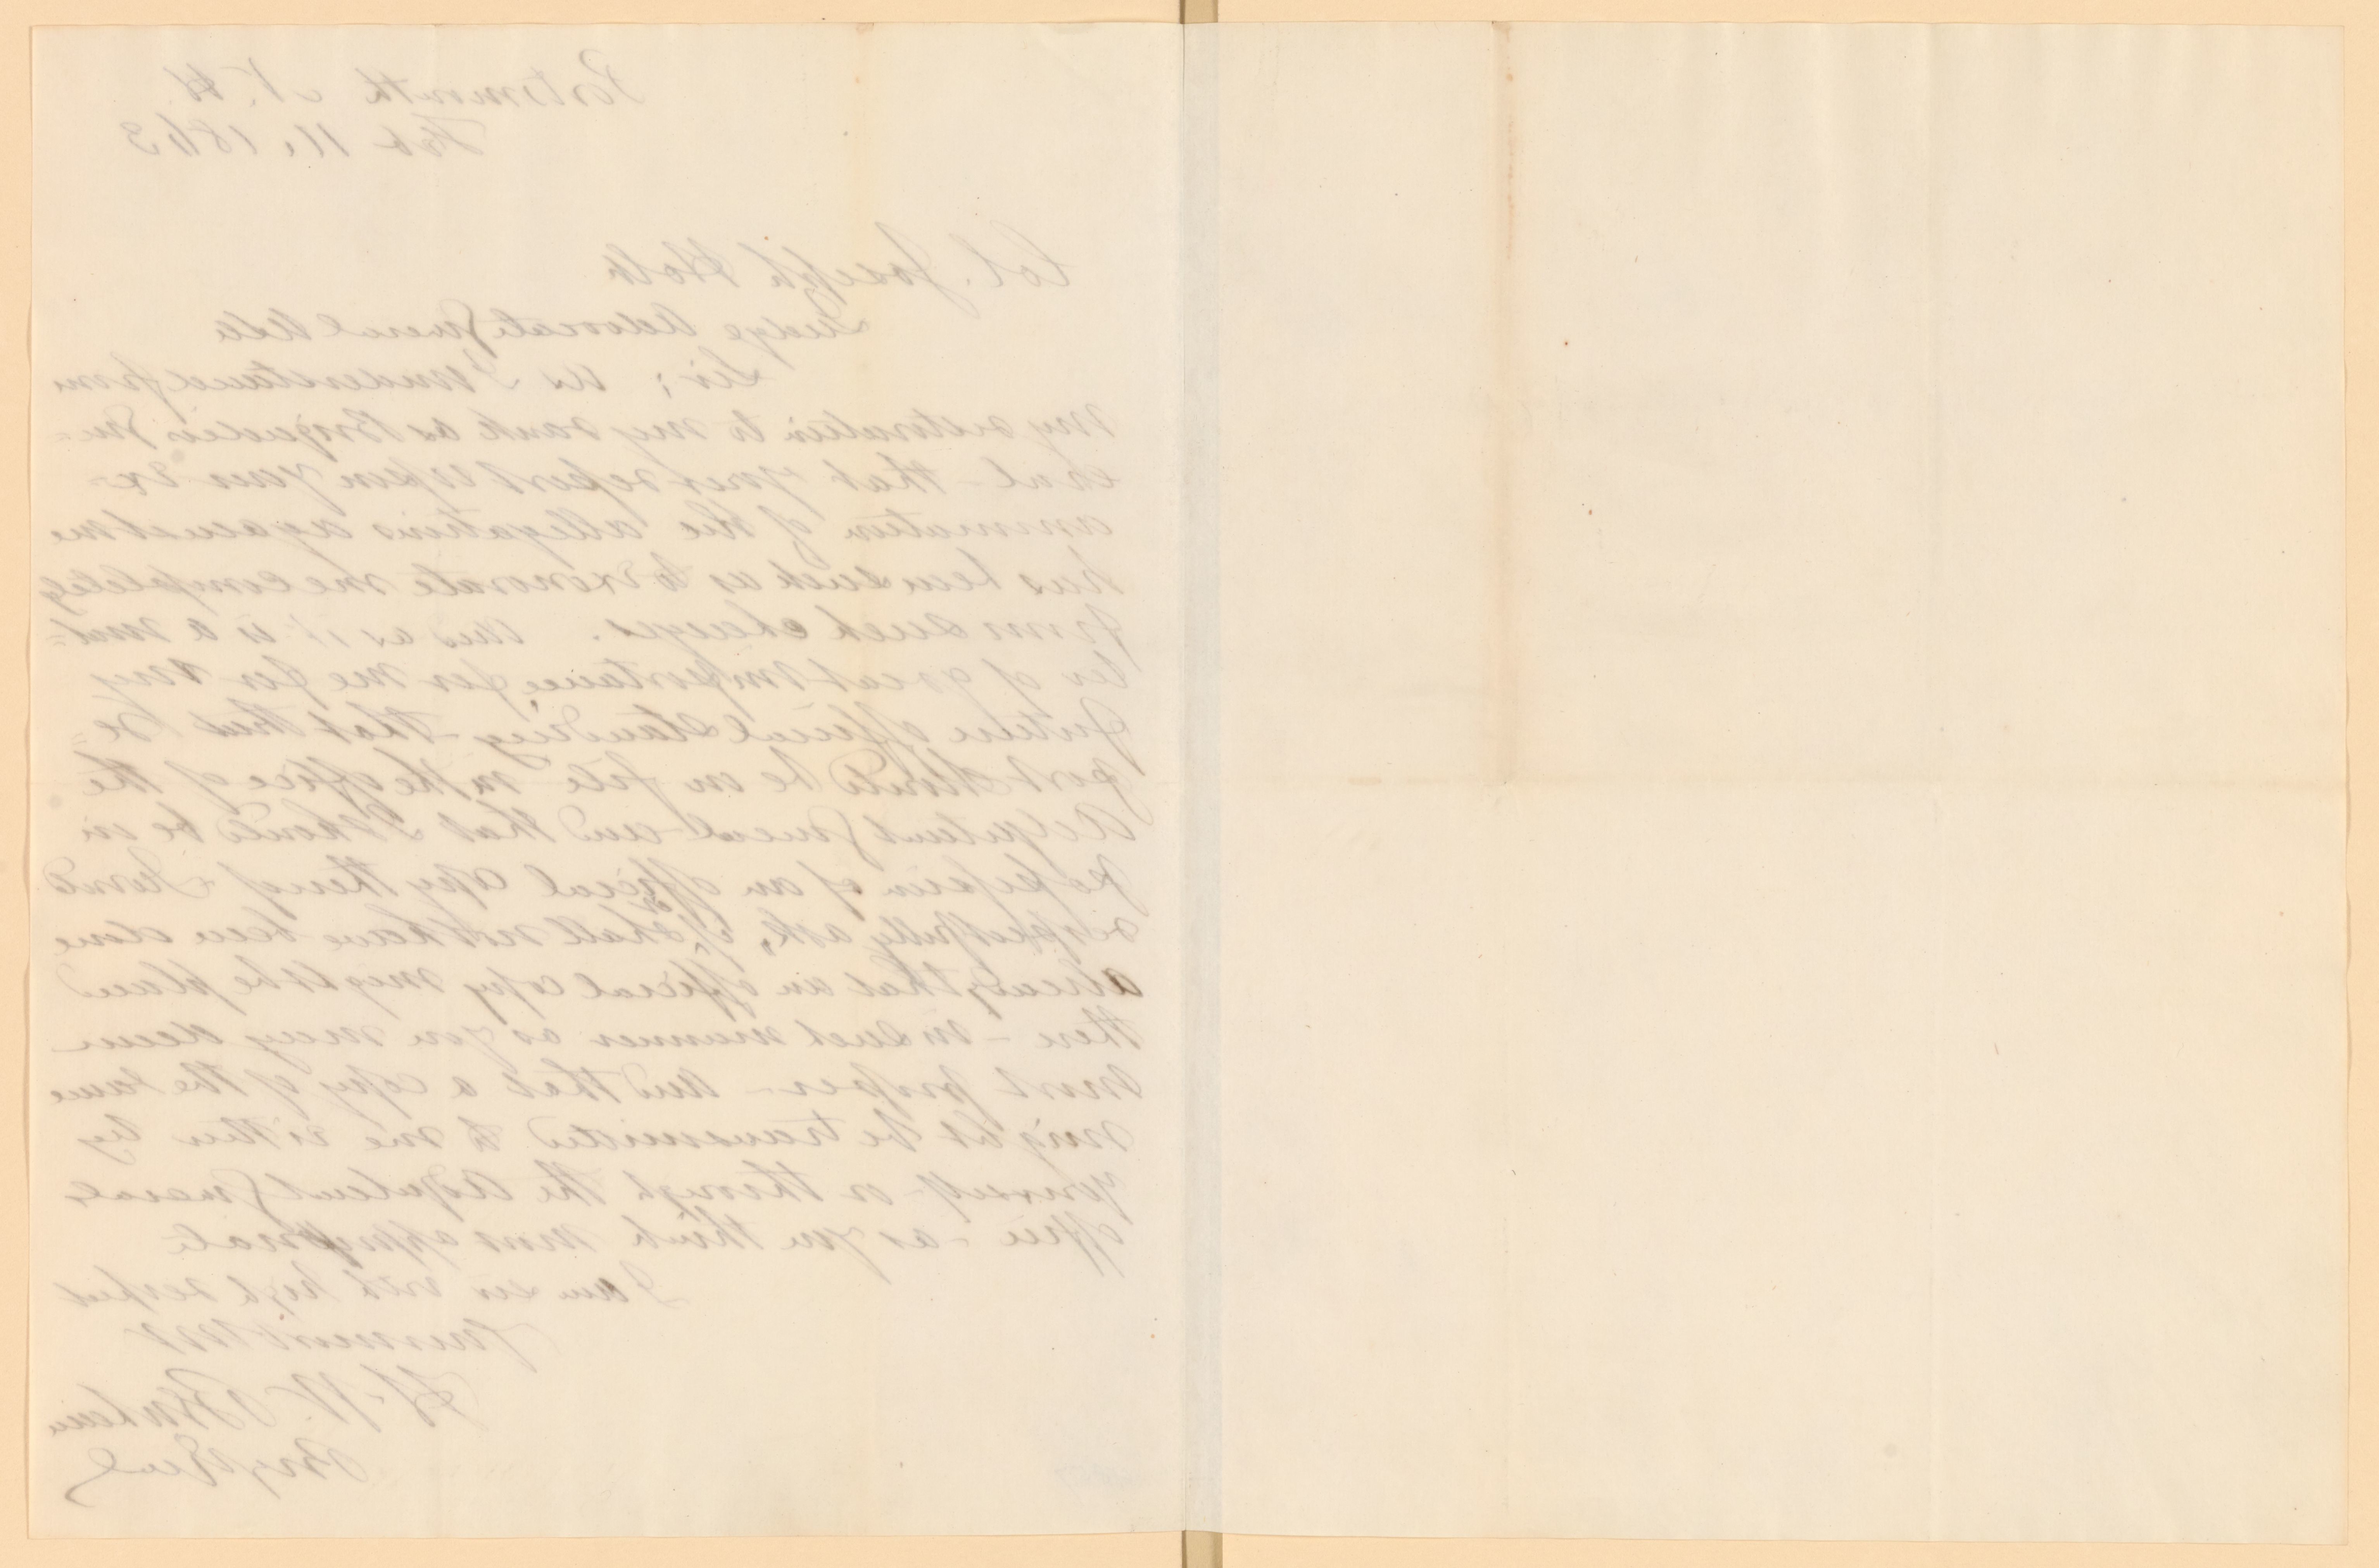 Portsmouth N.H.
Feb 11, 1863
Col. Joseph Holt
Judge Advocate General USA
Sir; As I understand from
my restoration to my rank as Brigadier Gen=
eral - that your report upon your ex-
amination of the allegations against me
has been such as to exonerate me completely
from such charges. And as it is a mat=
ter of great importance for me for my
future official standing - that this Re=
port should be on file in the office of the
Adjutant General and that I should be in
possession of an official copy thereof - I would
respectfully ask, if shall not have been done
already that an official copy might be placed
there - in such manner as you may deem
most proper - And that a copy of the same
might be transmitted to me either by
yourself - or through the Adjutant Generals
office - as you think most appropriate
I am sir with high respect
Your most
H. W. Benham
Brig Genl